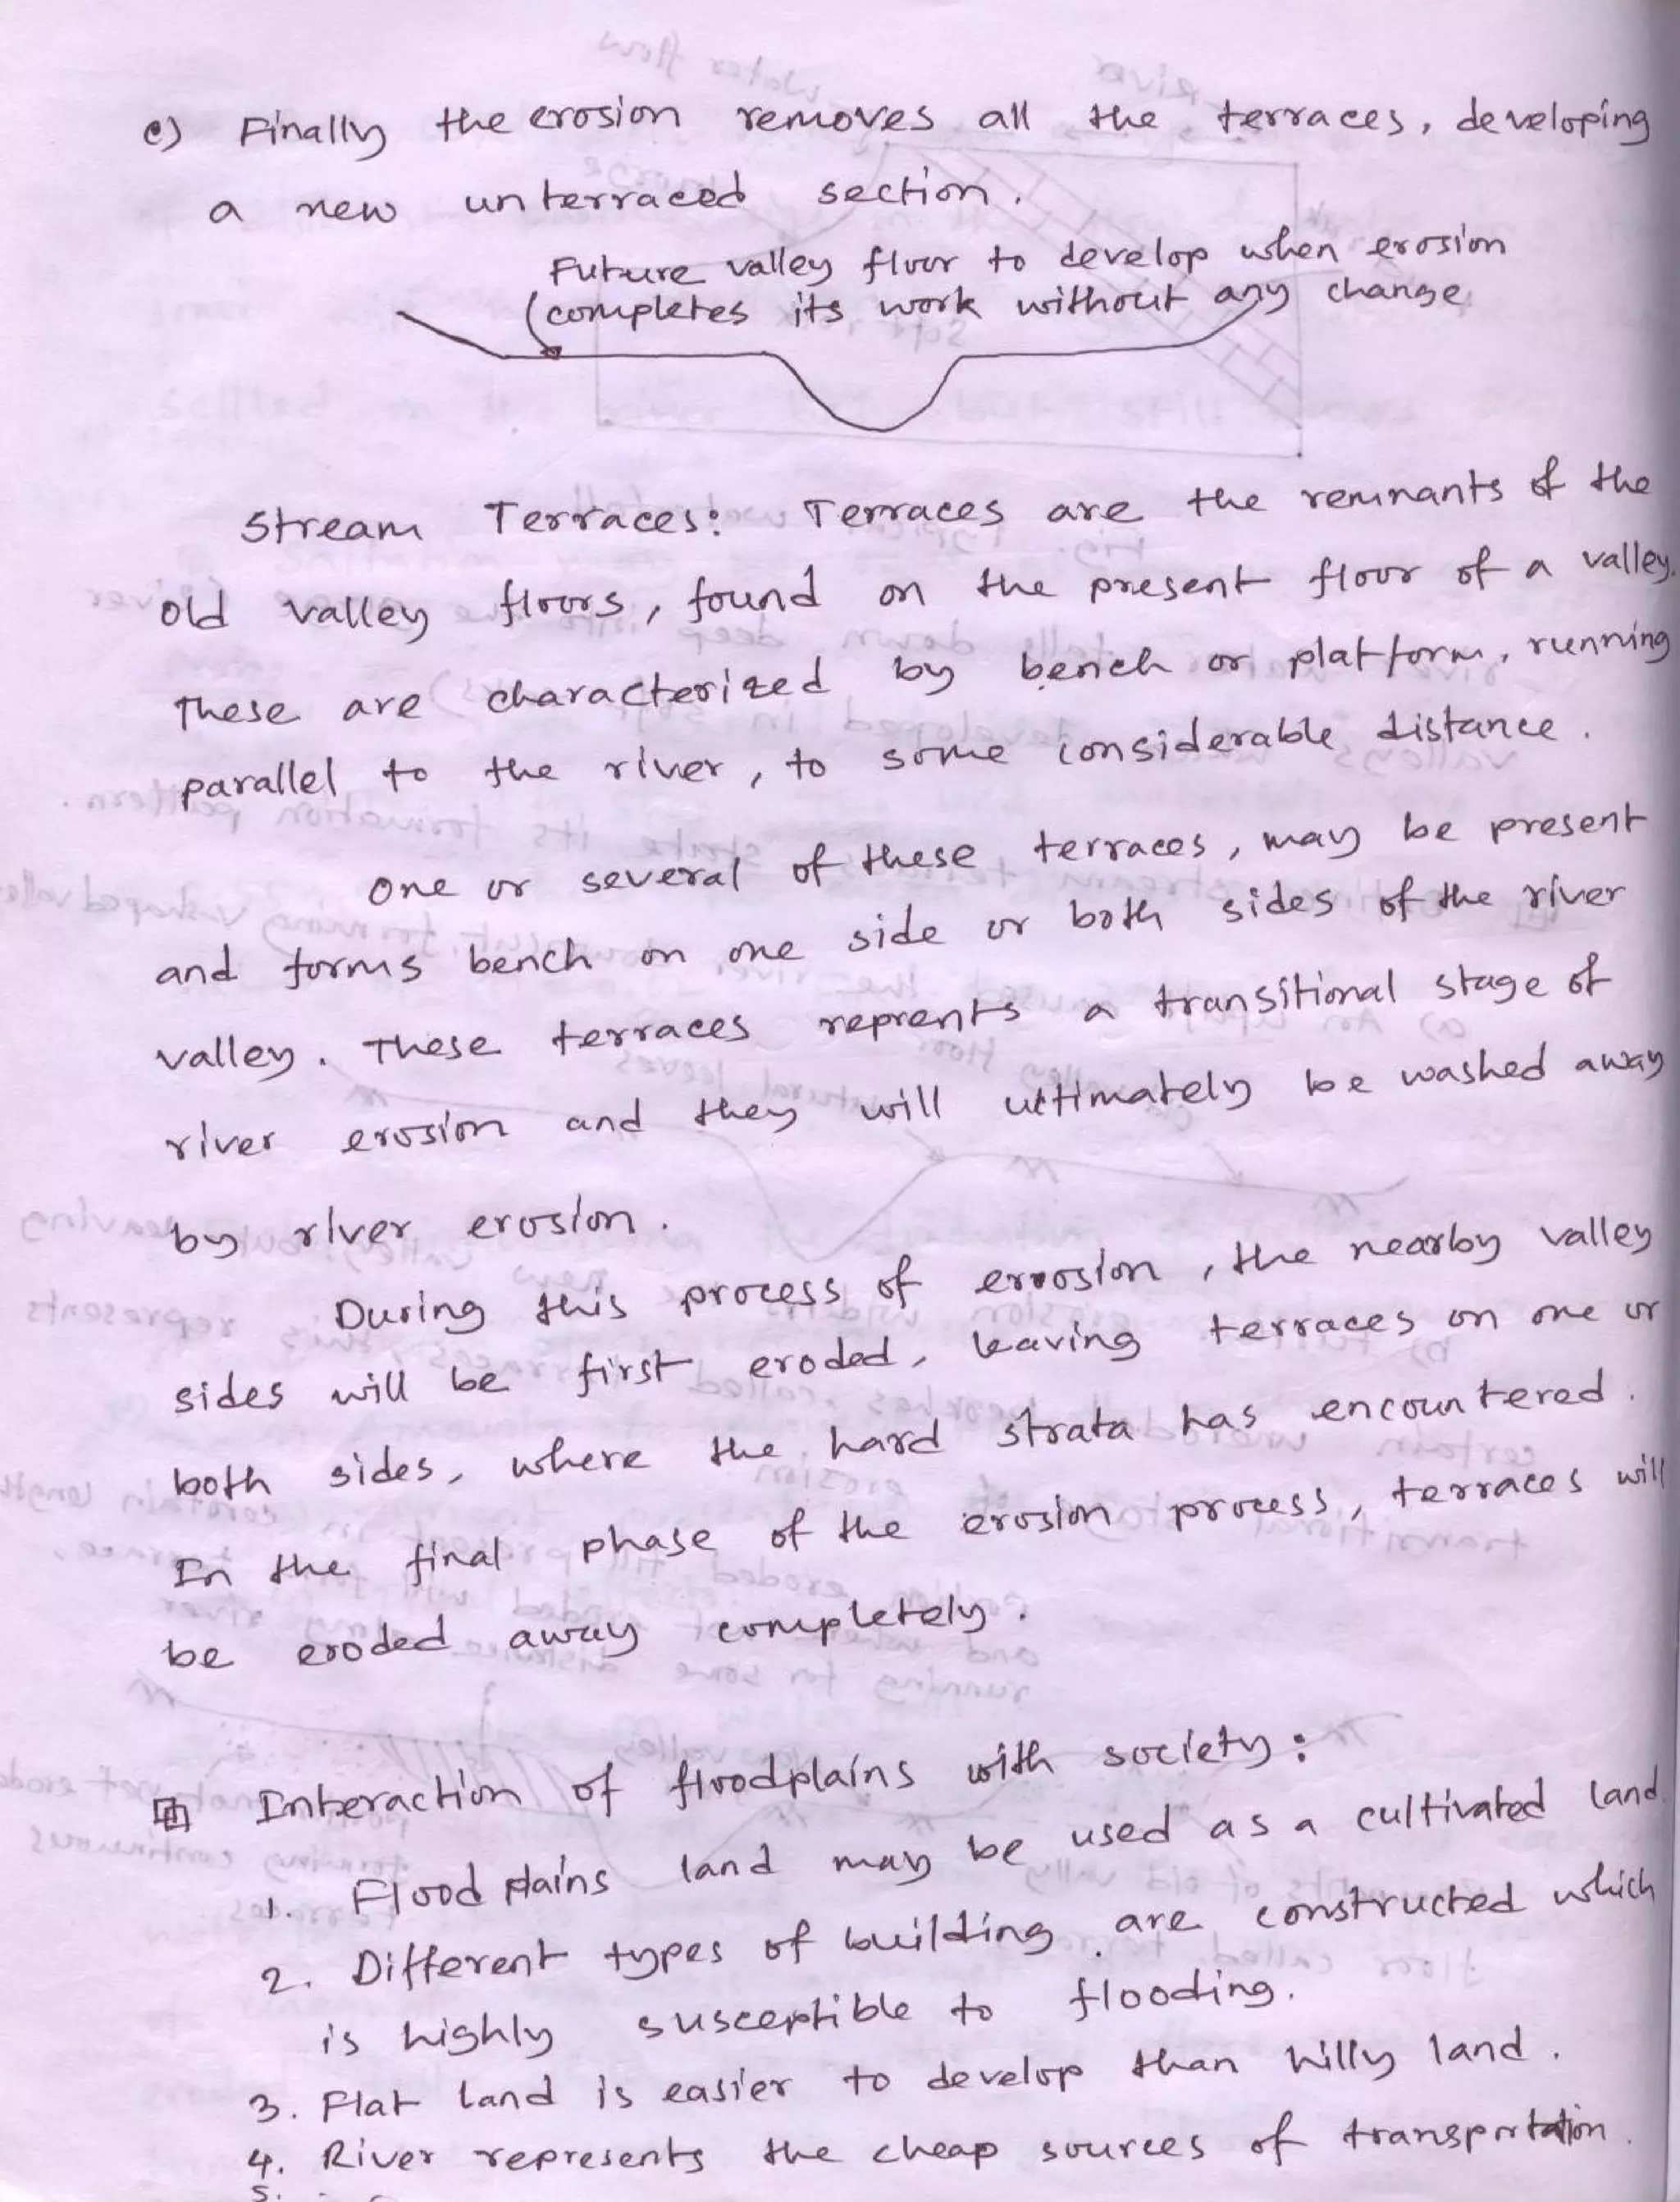 c) Finally the erosion removes all the terraces, developing
a new unterraced section.
Future valley floor to develop when erosion
completes its work without any change
Stream Terraces: Terraces are the remnants of the
old valley floors, found on the present floor of a valley.
These are characterized by bench or platform, running
parallel to the river, to some considerable distance.
One or several of these terraces, may be present
and forms bench on one side or both sides of the river
valley. These terraces reprents a transitional stage of
river erosion and they will ultimately be washed away
by river erosion.
During this process of errosion, the nearby valley
sides will be first eroded, leaving terraces on one or
both sides, where the hard strata has encountered.
In the final phase of the erosion process, terraces will
be eroded away completely.
Interaction of floodplains with society:
1. Flood plains land may be used as a cultivated land.
2. Different types of building are constructed which
is highly susceptible to flooding.
3. Flat land is easier to develop than hilly land.
4. River represents the cheap sources of transportation.
5.